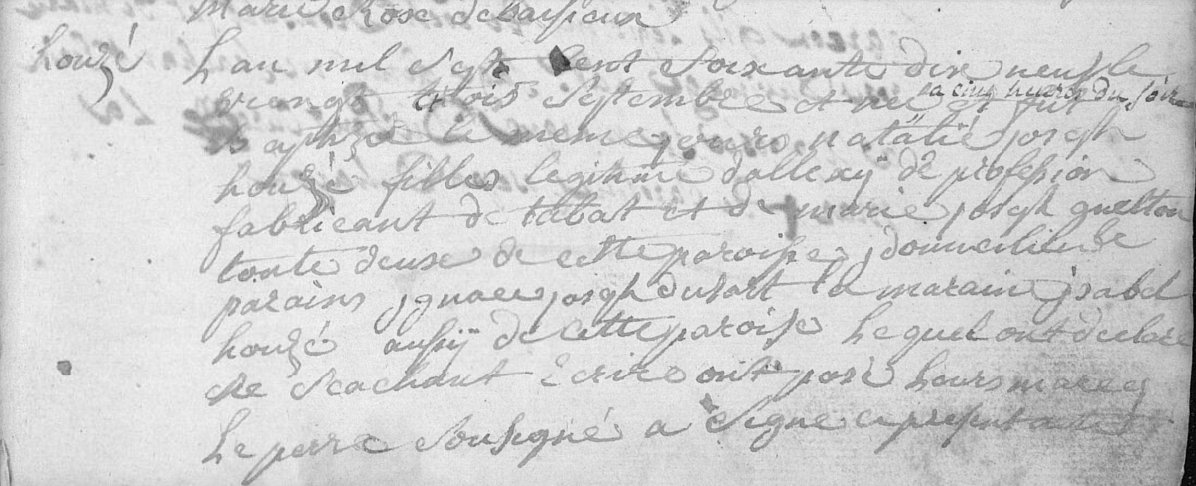 Marie Rose debaisieux
houzé
Lan mil Sept Cent Soixante dix neuf le
viengt trois Septembre et née a cinq heures du soire et fut
baptizé le meme jours natalié joseph
houzé filles legitime dallexÿ de profession
fabricant de tabat et de marie joseph guelton
toute deux de cette paroisse, domicilié le
parains jgnace joseph dufort la maraine jsabel
houzé aussÿ de cette paroise Lequel ont declaré
ne Scachant Ecrire ont posé Leurs marecq
Le perre Sousigné a Signé ce present acte